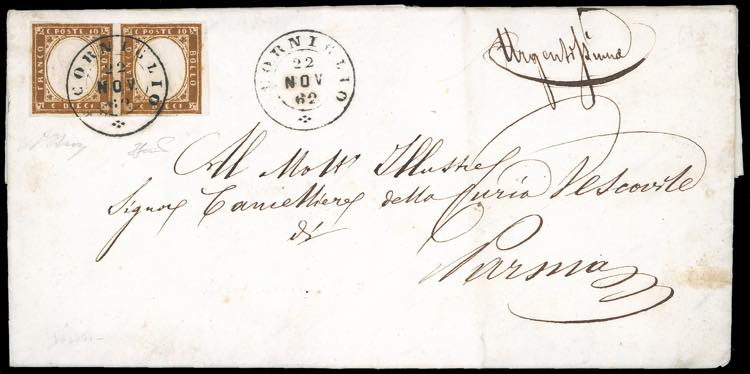 C. POSTE 10 C. POSTE 10
FRANCO BOLLO FRANCO BOLLO
C. DIECI C. DIECI
CORNIGLIO
22
NOV
CORNIGLIO
22
NOV
62
Urgentissima
Al Molto Illustre
Signor Cancelliere della Curia Vescovile
di
Parma